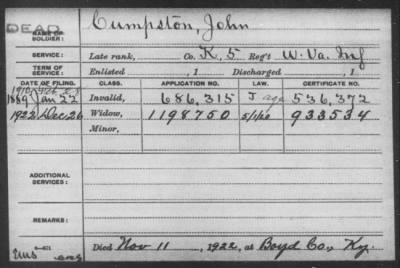 DEAD
NAME OF SOLDIER: Cumpston, John
SERVICE: Late rank, Co. K, 5 Reg't W. Va. Inf
TERM OF SERVICE: Enlisted , 1 Discharged , 1
DATE OF FILING. CLASS. APPLICATION NO. LAW. CERTIFICATE NO.
1889 Jan 22 Invalid, 686,315 J age 536,372
1922 Dec 26 Widow, 1198750 5/1/20 933534
Minor,
ADDITIONAL SERVICES:
REMARKS:
Died Nov 11, 1922, at Boyd Co., Ky.